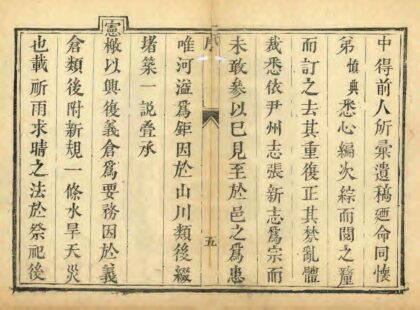 中得前人所彙遺稿廼命同懷
弟惟典悉心編次綜而閱之釐
而訂之去其重復正其棼亂體
裁悉依尹州志張新志爲宗而
未敢參以己見至於邑之爲患
序
五
唯河溢爲鉅因於山川類後綴
堵築一說叠承
憲檄以興復義倉爲要務因於義
倉類後附新規一條水旱天災
也載祈雨求晴之法於祭祀後